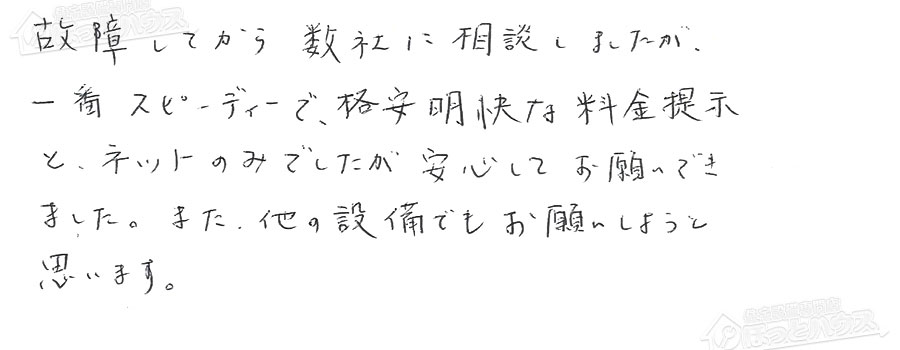 故障してから数社に相談しましたが、
一番スピーディーで、格安明快な料金提示
と、ネットのみでしたが安心してお願いでき
ました。また、他の設備でもお願いしようと
思います。
住宅設備専門店
ほっとハウス